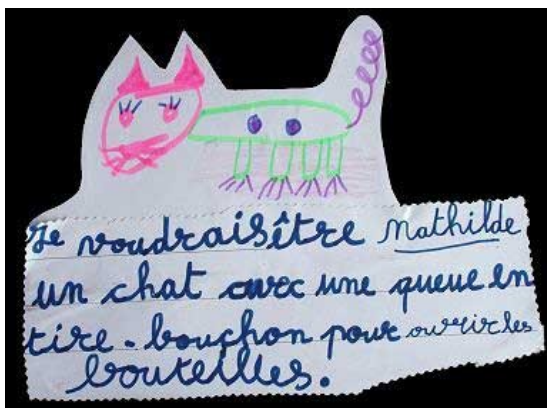 Je voudrais être Mathilde
un chat avec une queue en
tire-bouchon pour ouvrir les
bouteilles.